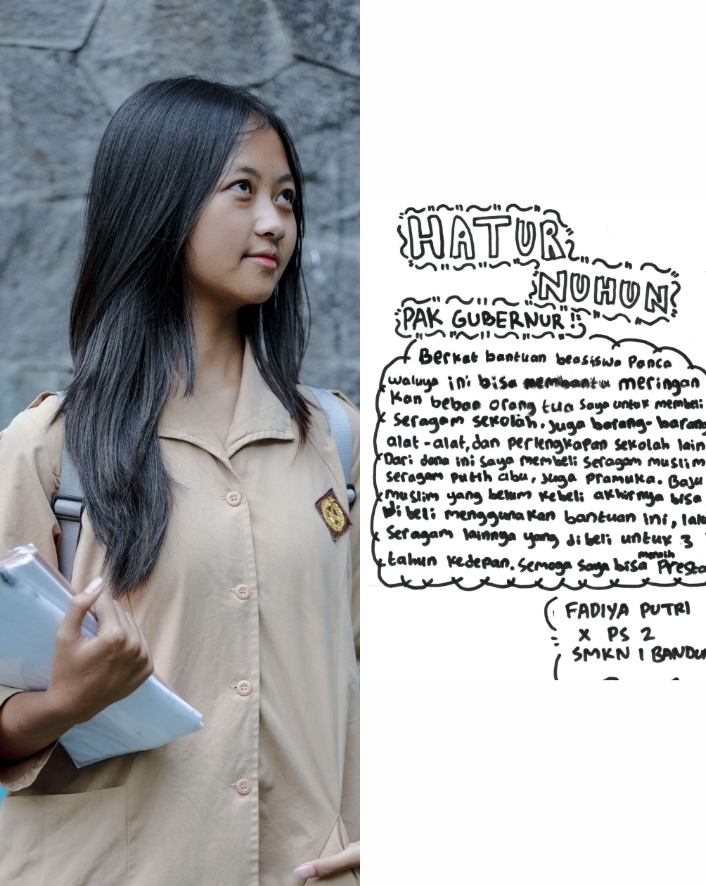 HATUR
NUHUN
PAK GUBERNUR !!
Berkat bantuan beasiswa Panca
waluya ini bisa membantu meringan
kan beban orang tua saya untuk membeli
seragam sekolah, juga barang-barang
alat-alat, dan perlengkapan sekolah lain
Dari dana ini saya membeli seragam muslim
seragam putih abu, juga pramuka. Baju
muslim yang belum kebeli akhirnya bisa
di beli menggunakan bantuan ini, 
seragam lainnya yang dibeli untuk 3
tahun kedepan. Semoga saya bisa meraih Presta
FADIYA PUTRI
X PS 2
SMKN 1 BANDU